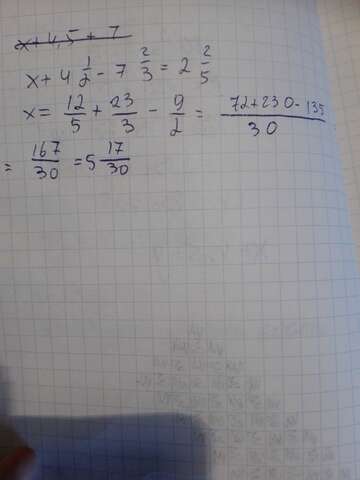 x+4,5+7
x+4 1/2 - 7 2/3 = 2 2/5
x= 12/5 + 23/3 - 9/2 = 72+230-135/30
= 167/30 = 5 17/30